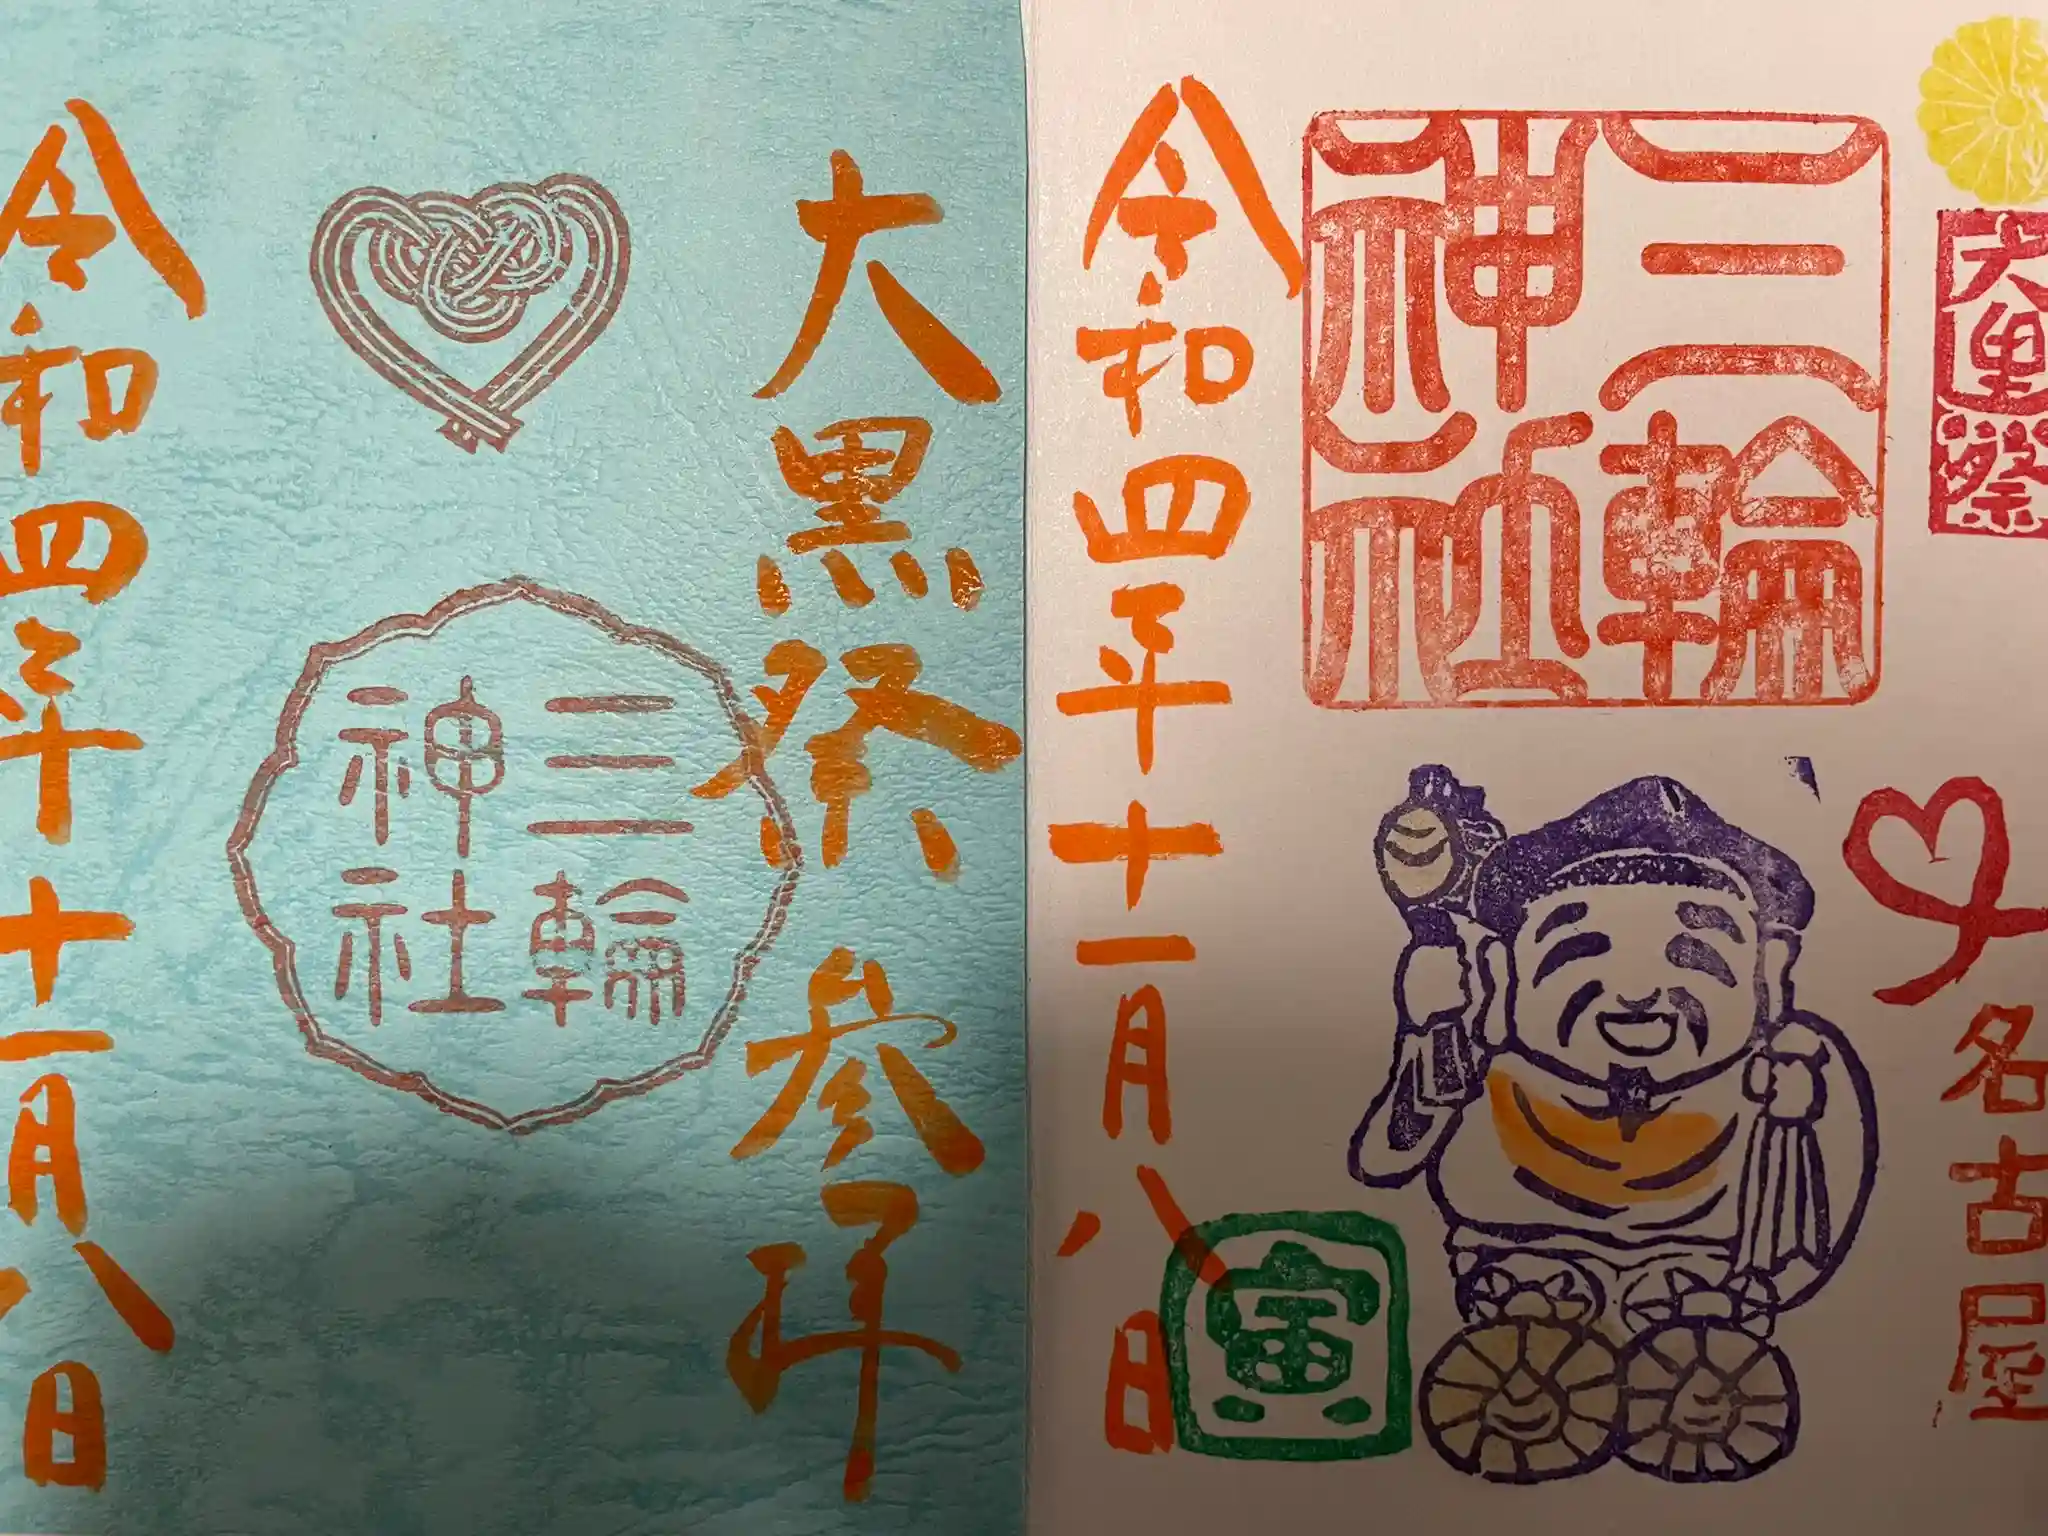 大黒祭
名古屋
三輪
神社
令和四年十一月八日
寅
大黒祭 参拝
三輪
神社
令和四年十一月八日